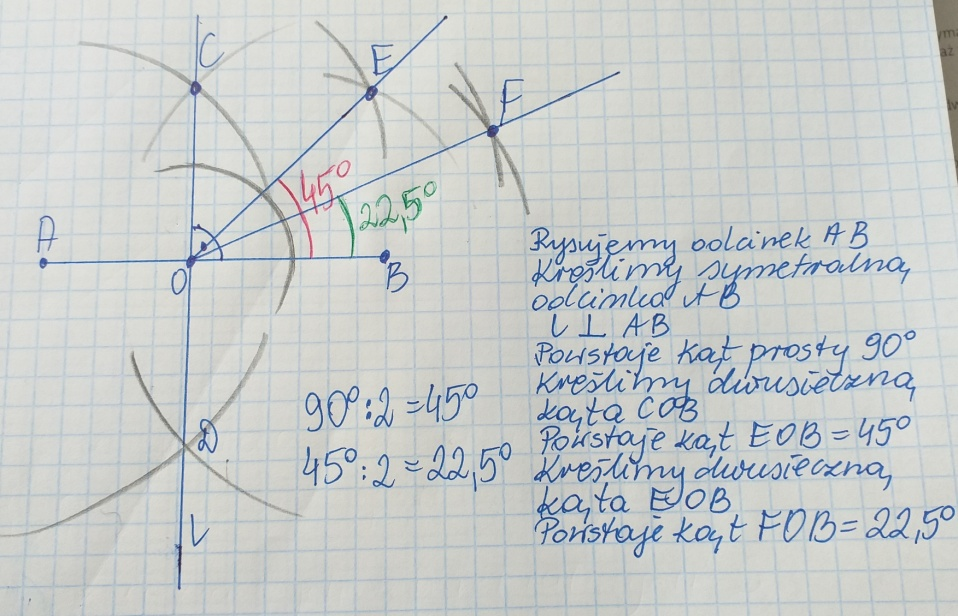 C
E
F
45°
22,5°
A
O
B
Rysujemy odcinek AB
Kreślimy symetralną
odcinka AB
L ⊥ AB
Powstaje kąt prosty 90°
Kreślimy dwusieczną
kąta COB
Powstaje kąt EOB = 45°
Kreślimy dwusieczną
kąta EOB
Powstaje kąt FOB = 22,5°
90° : 2 = 45°
45° : 2 = 22,5°
D
L